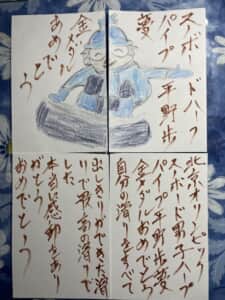 スボードハーフ
パイプ 平野歩
夢
金メダル
おめでとう
北京オリンピック
スボード男子ハーフ
パイプ平野歩夢
金メダルおめでとう
自分の滑りをすべて
出しきりができた滑
りで最高の滑りで
した
本当に感動をあり
がとう
おめでとう